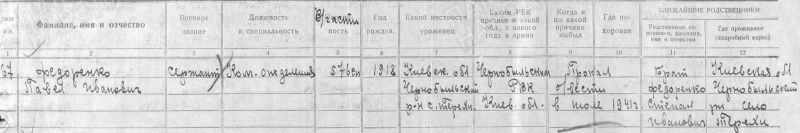 Фамилия, имя и отчество
Военное звание
Должность и специальность
Партийность
Год рожден.
Какой местности уроженец
Каким РВК призван и какой обл., с какого года в армии
Когда и по какой причине выбыл
Где похоронен
БЛИЖАЙШИЕ РОДСТВЕННИКИ
Родственные отношения, фамилия, имя и отчество
Где проживают (подробный адрес)
1 2 3 4 5 6 7 8 9 10 11 12
67 Федоренко сержант Ком. отделения 576 сп 1918 Киевск. обл Чернобыльским Пропал Брат Киевская обл
Павел Иванович Чернобыльский РВК б вести Федоренко Чернобыльск
р-н с. Терехи. Киев. обл. в июле 1941г. Степан рн село
Иванович Терехи